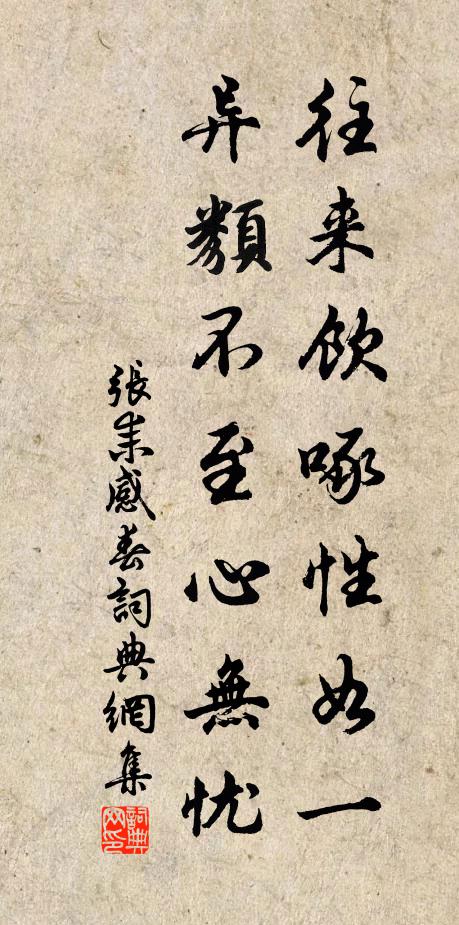 往来飲啄性如一
异類不至心無忧
張耒感春詞典網集
詞典网印